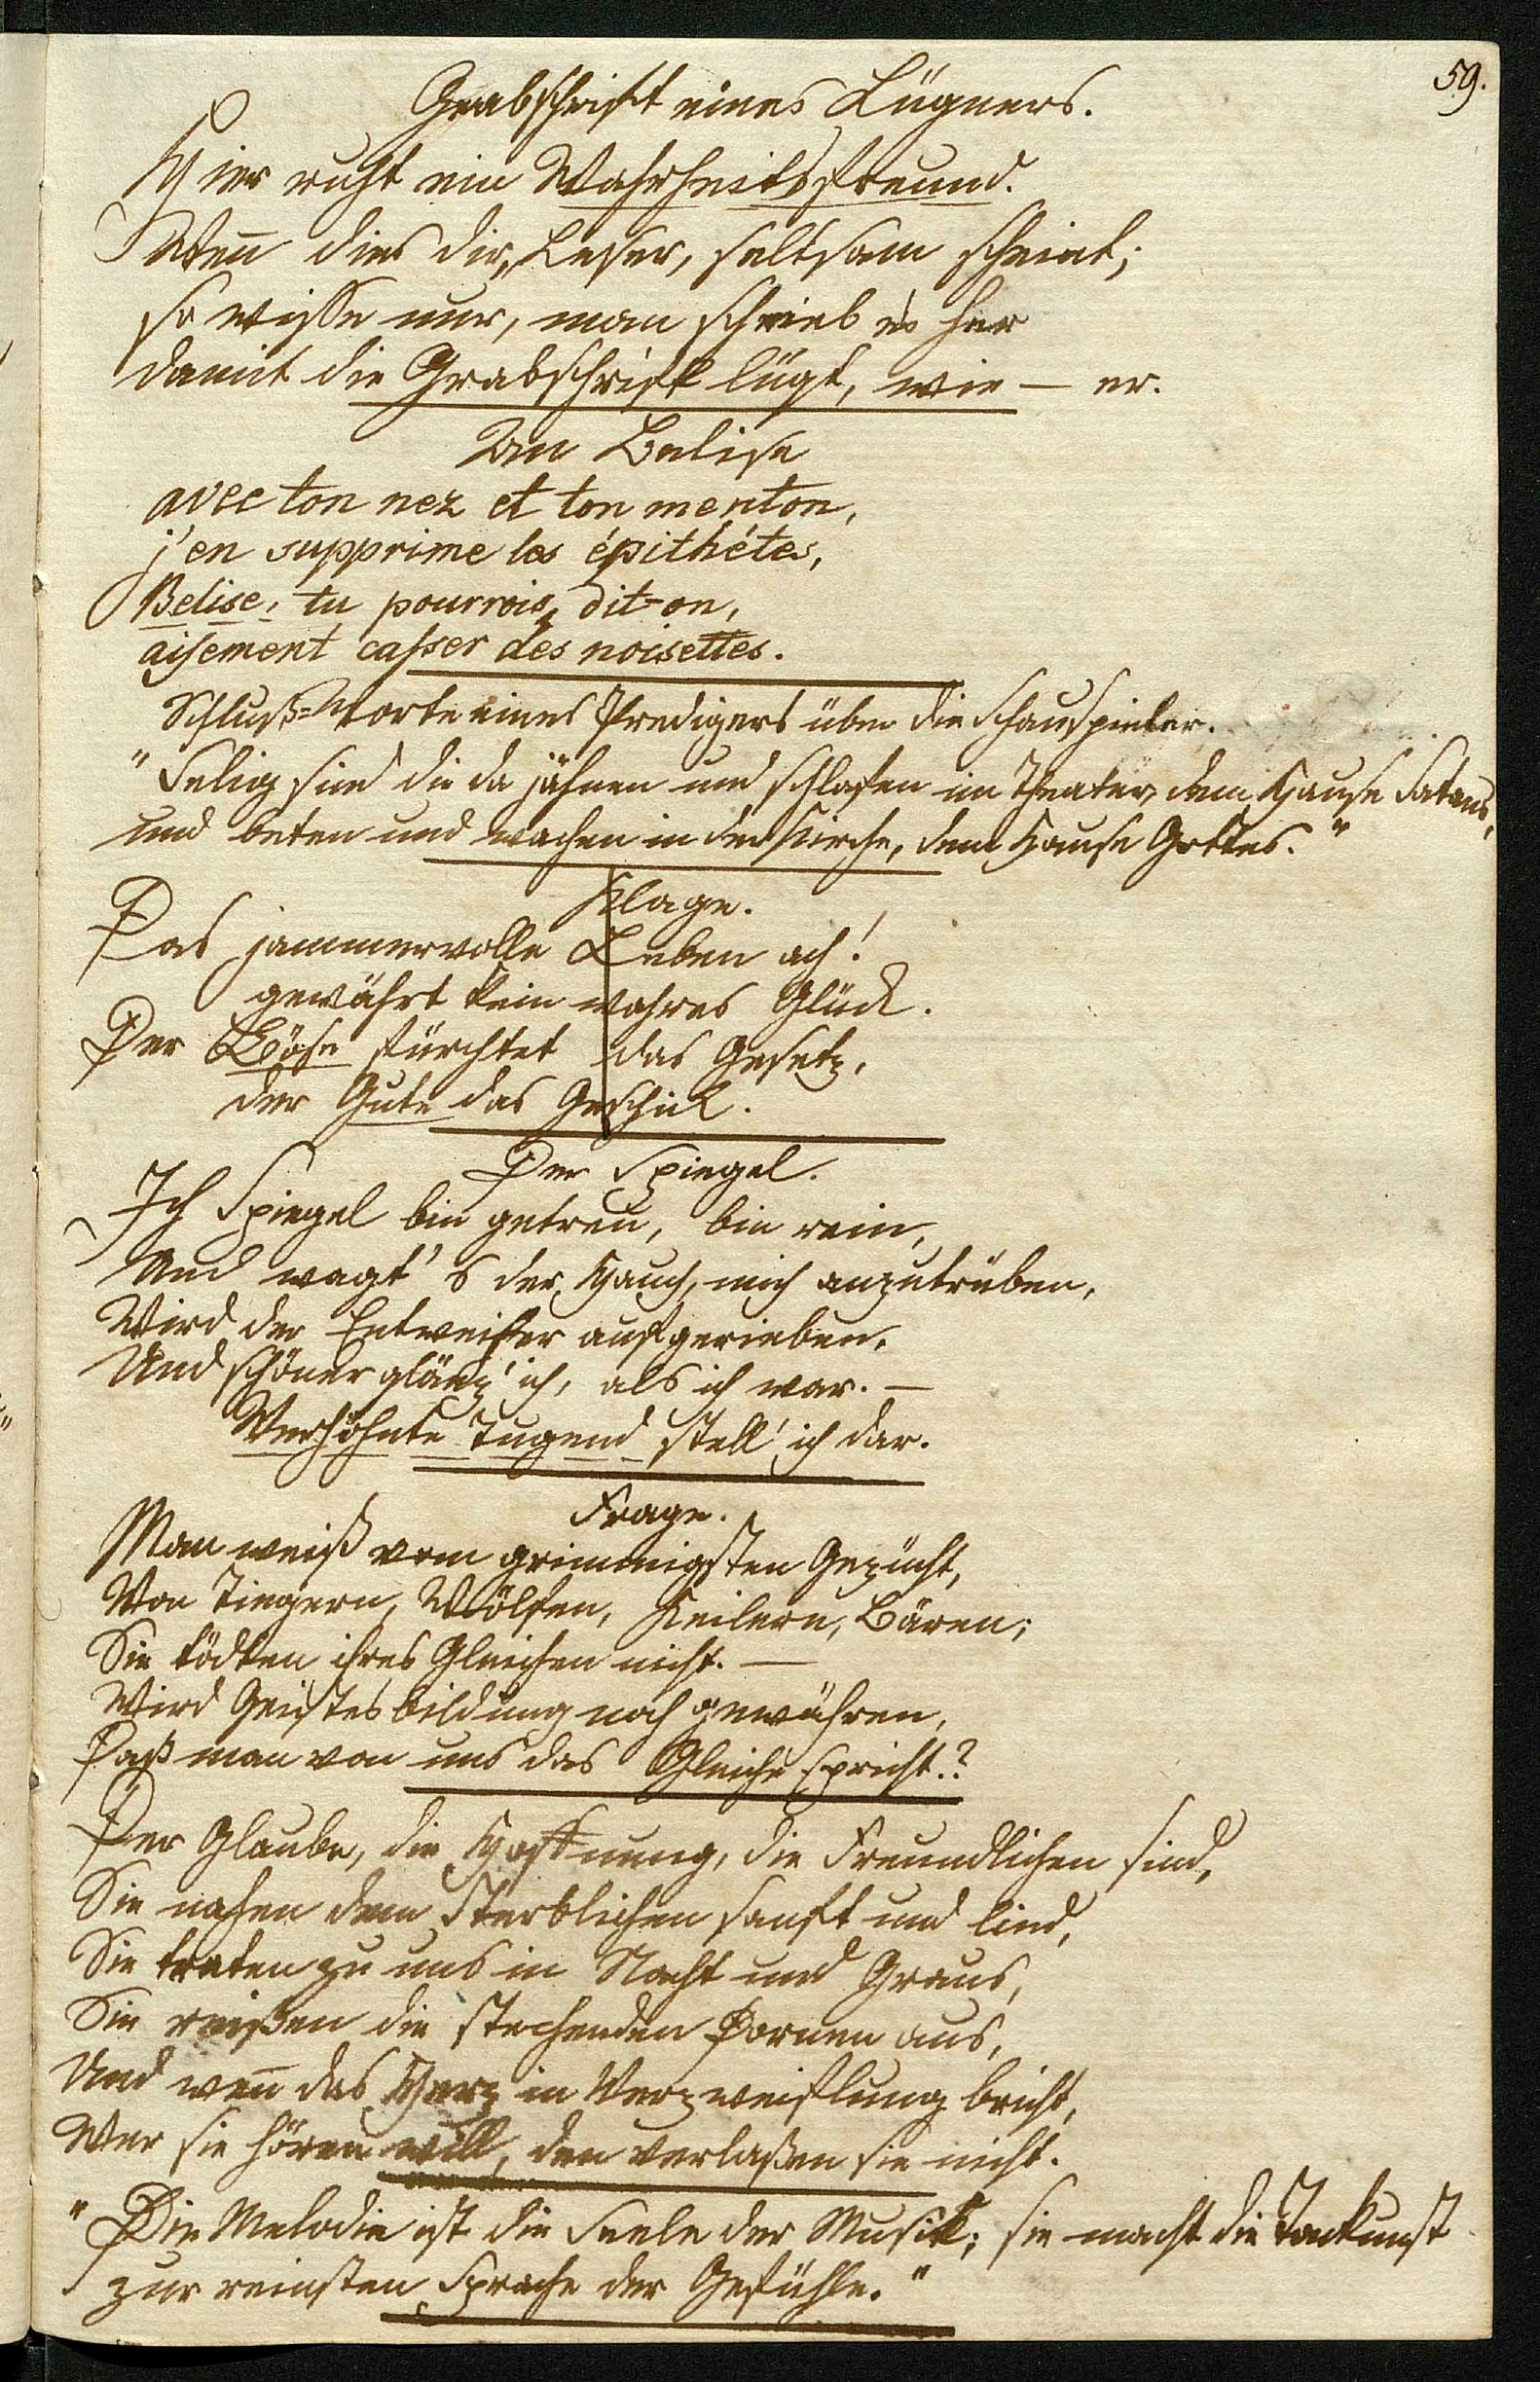 59.
Grabschrift eines Lügners.
Hier ruht ein Wahrheitsfreund.
Wen̅ dies dir, Leser, seltsam scheint;
so wisse nur, man schrieb es her
damit die Grabschrift lügt, wie — er.
An Belise
avec ton nez et ton menton,
j'en supprime les épithétes,
Belise, tu pourrois, dit-on,
aisement casser des noisettes.
Schluß-Worte eines Predigers über die Schauspieler.
"Selig sind die da jähnen und schlafen im Theater, dem Hause Satans,
und beten und wachen in der Kirche, dem Hause Gottes."
Klage.
Das jammervolle Leben ach!
gewährt kein wahres Glück.
Der Böse fürchtet das Gesetz,
der Gute das Geschick.
Der Spiegel.
Ich Spiegel bin getreu, bin rein,
Und wagt's der Hauch, mich anzutrüben,
Wird der Entweiher aufgerieben,
Und schöner glänz' ich, als ich war. —
Verhöhnte Tugend stell' ich dar.
Frage.
Man weiß vom grimmigsten Gezücht,
Von Tiegern, Wölfen, Keilern, Bären;
Sie tödten ihres Gleichen nicht. —
Wird Geistesbildung noch gewähren,
Daß man von uns das Gleiche spricht.?
Der Glaube, die Hoffnung, die Freundlichen sind,
Sie nahen dem Sterblichen sanft und lind,
Sie traten zu uns in Nacht und Graus,
Sie reißen die stechenden Dornen aus,
Und wen̅ das Herz in Verzweiflung bricht,
Wer sie hören will, den verlaßen sie nicht.
"Die Melodie ist die Seele der Musik; sie macht die Tonkunst
zur reinsten Sprache der Gefühle."